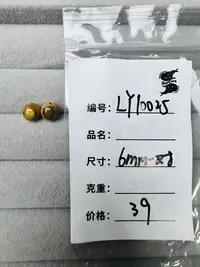 编号: LY10035
品名:
尺寸: 6mm一对
克重:
价格: 39